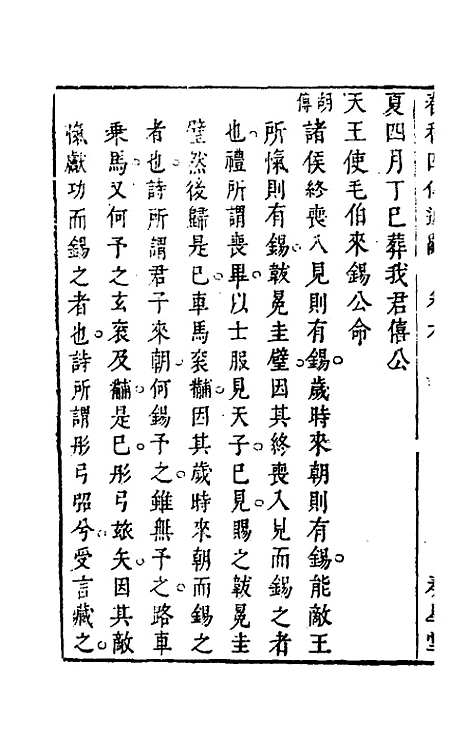 夏四月丁巳葬我君僖公
天王使毛伯來錫公命
胡傳諸侯終喪入見則有錫歲時來朝則有錫能敵王
所愾則有錫韍冕圭璧因其終喪入見而錫之者
也禮所謂喪畢以士服見天子已見賜之韍冕圭
璧然後歸是已車馬袞黼因其歲時來朝而錫之
者也詩所謂君子來朝何錫予之雖無予之路車
乘馬又何予之玄袞及黼是已彤弓玈矢因其敵
愾獻功而錫之者也詩所謂彤弓弨兮受言藏之